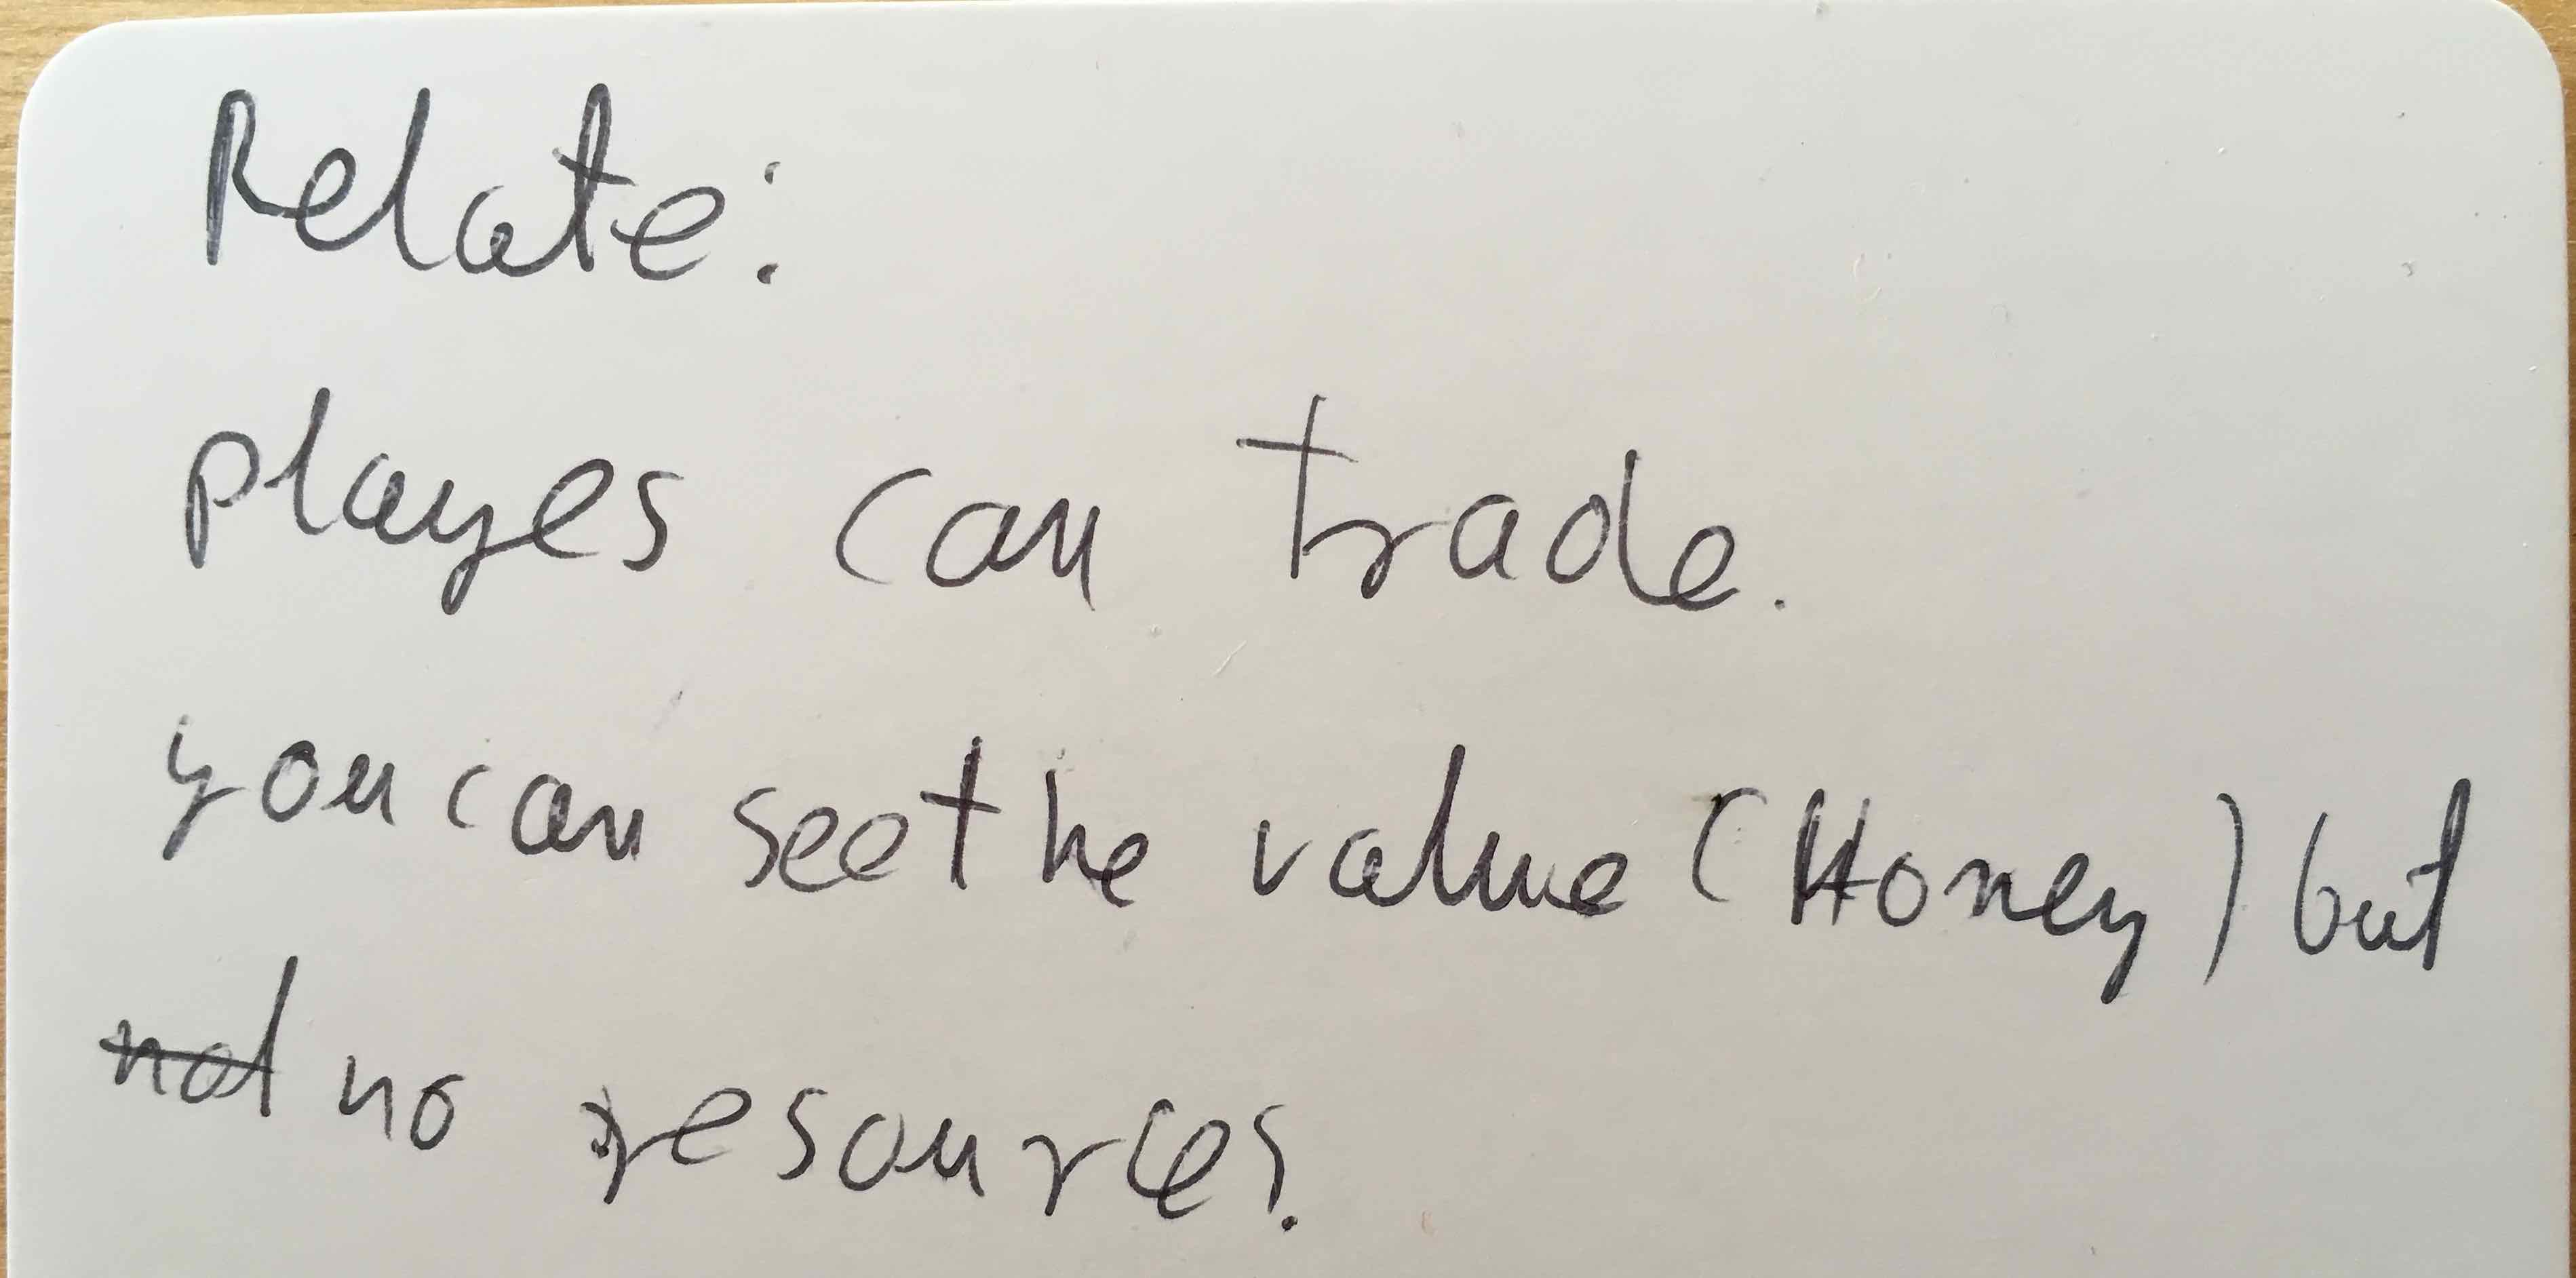 Relate:
playes can trade.
you can see the value (Honey) but
not no resources.